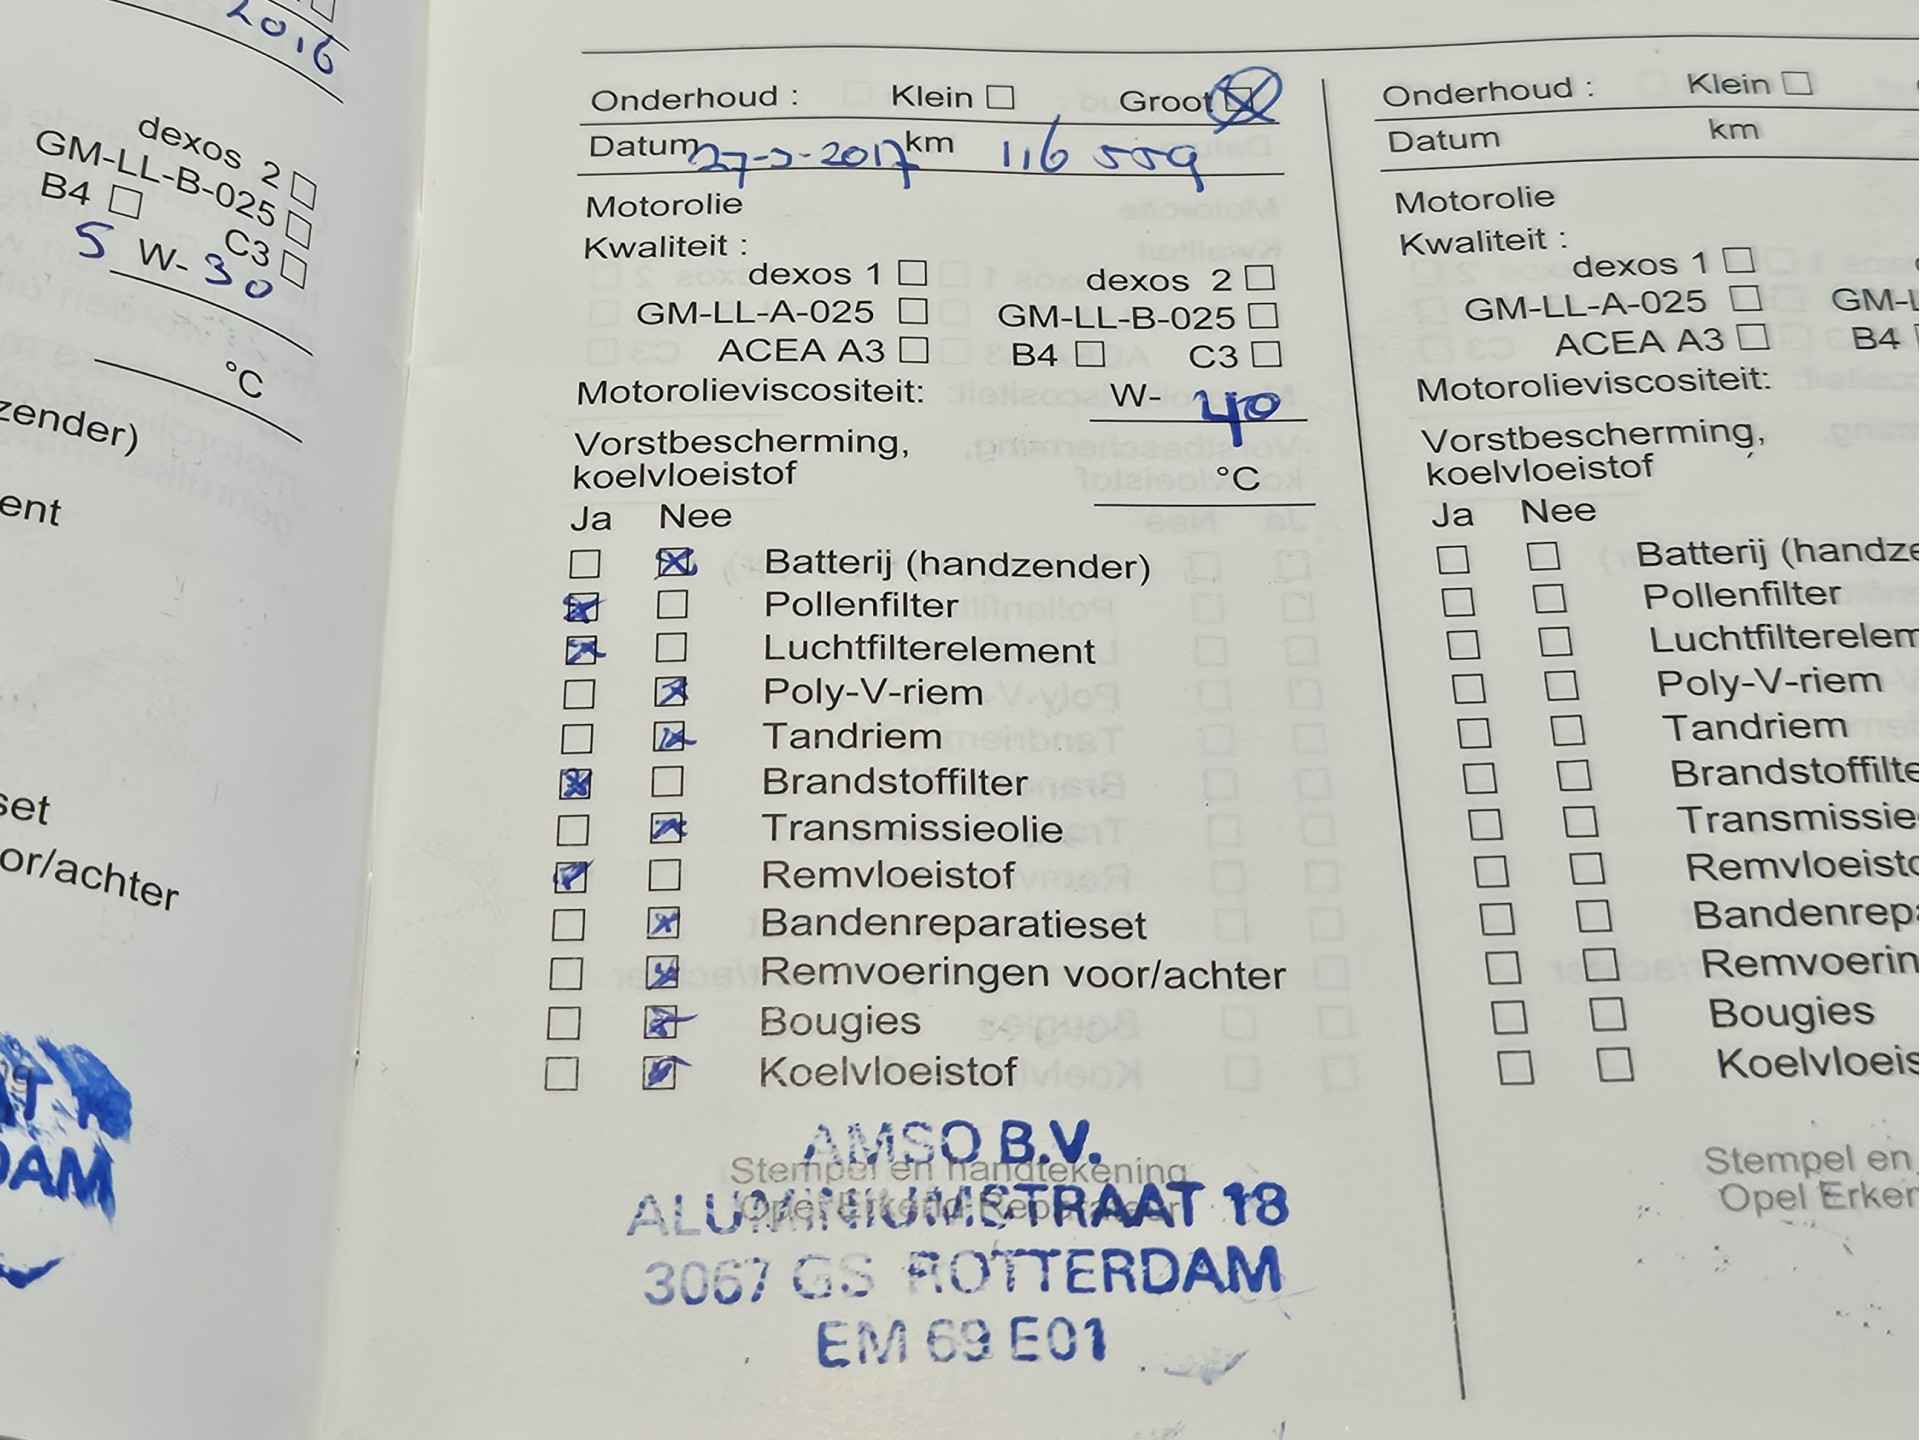 2016
dexos 2
GM-LL-B-025
B4 C3
5 W-30
°C
zender)
ent
set
oor/achter
DAM
Onderhoud : Klein Groot
Datum 27-3-2017 km 116 559
Motorolie
Kwaliteit :
dexos 1 dexos 2
GM-LL-A-025 GM-LL-B-025
ACEA A3 B4 C3
Motorolieviscositeit: W- 40
Vorstbescherming,
koelvloeistof °C
Ja Nee
Batterij (handzender)
Pollenfilter
Luchtfilterelement
Poly-V-riem
Tandriem
Brandstoffilter
Transmissieolie
Remvloeistof
Bandenreparatieset
Remvoeringen voor/achter
Bougies
Koelvloeistof
Stempel en handtekening
Opel Erkend Reparateur
AMSO B.V.
ALUMINIUMSTRAAT 18
3067 GS ROTTERDAM
EM 69 E01
Onderhoud : Klein
Datum km
Motorolie
Kwaliteit :
dexos 1
GM-LL-A-025 GM-L
ACEA A3 B4
Motorolieviscositeit:
Vorstbescherming,
koelvloeistof
Ja Nee
Batterij (handze
Pollenfilter
Luchtfilterelem
Poly-V-riem
Tandriem
Brandstoffilte
Transmissie
Remvloeisto
Bandenrepa
Remvoerin
Bougies
Koelvloeis
Stempel en
Opel Erken